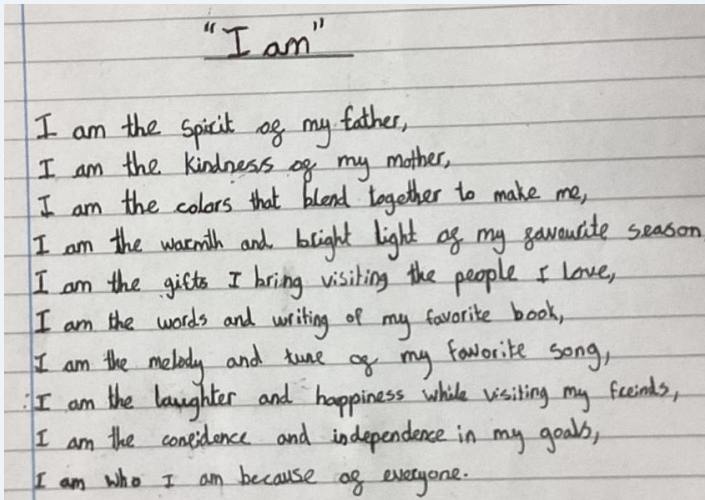 "I am"
I am the spirit of my father,
I am the kindness of my mother,
I am the colors that blend together to make me,
I am the warmth and bright light of my favourite season
I am the gifts I bring visiting the people I love,
I am the words and writing of my favorite book,
I am the melody and tune of my favorite song,
I am the laughter and happiness while visiting my freinds,
I am the confidence and independence in my goals,
I am who I am because of everyone.